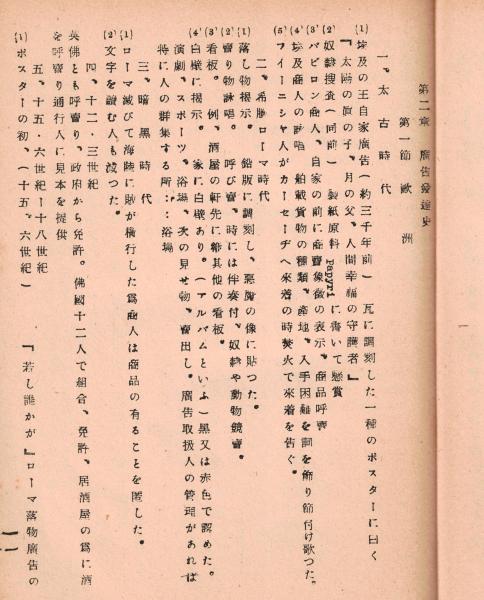 第二章 廣告發達史
第一節 歐洲
一、太古時代
(1) 埃及の王自家廣告(約三千年前) 瓦に調刻した一種のポスターに曰く
『太陽の眞の子、月の父、人間幸福の守護者』
(2) 奴隷搜査(同前) 製紙原料 Papyri に書いて懸賞
(3) バビロン商人、自家の前に商賣象徴の表示、商品呼賣
(4) 埃及商人の 唱 舶載貨物の種類、產地、入手困難を詞を飾り節付け歌つた。
(5) フイーニシヤ人がカーセーヂへ來着の時焚火で來着を告ぐ。
二、希臘ローマ時代
(1) 落し物揭示。 鉛版に調刻し、惡魔の像に貼つた。
(2) 賣り物詠唱。 呼び賣、時には伴奏付、奴隷や動物競賣。
(3) 看板。 例、酒屋の軒先に 其他の看板。
(4) 白壁に揭示。 家に白壁あり。(アルバムといふ)黑又は赤色で認めた。
演劇、スポーツ、浴場、次の見せ物、賣出し。廣告取扱人の管理があれば
特に人の群集する所::浴場
三、暗黑時代
(1) ローマ滅びて海陸に賊が橫行した爲商人は商品の有ることを匿した。
(2) 文字を讀む人も減つた。
四、十二・三世紀
英佛とも呼賣り、政府から免許。佛國十二人で組合、免許、居酒屋の爲に酒
を呼賣り通行人に見本を提供
五、十五・六世紀ー十八世紀
(1) ポスターの初、(十五、六世紀) 『若し誰かが』ローマ落物廣告の
一一